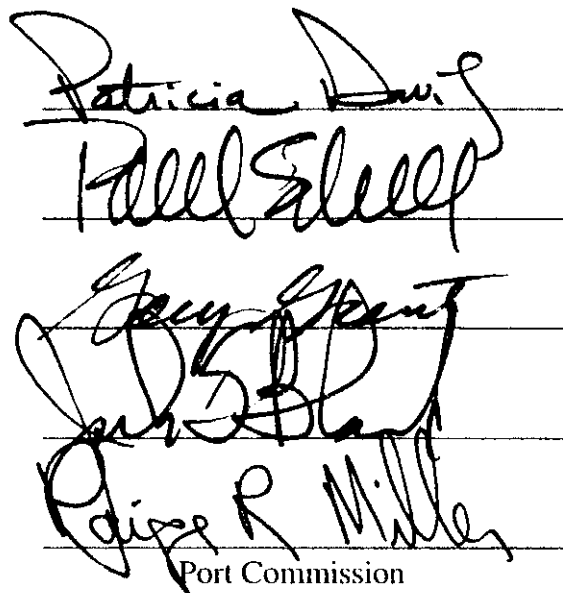 Patricia Davis
Paul Schell
Gary Grant
Jack Block
Paige R Miller
Port Commission